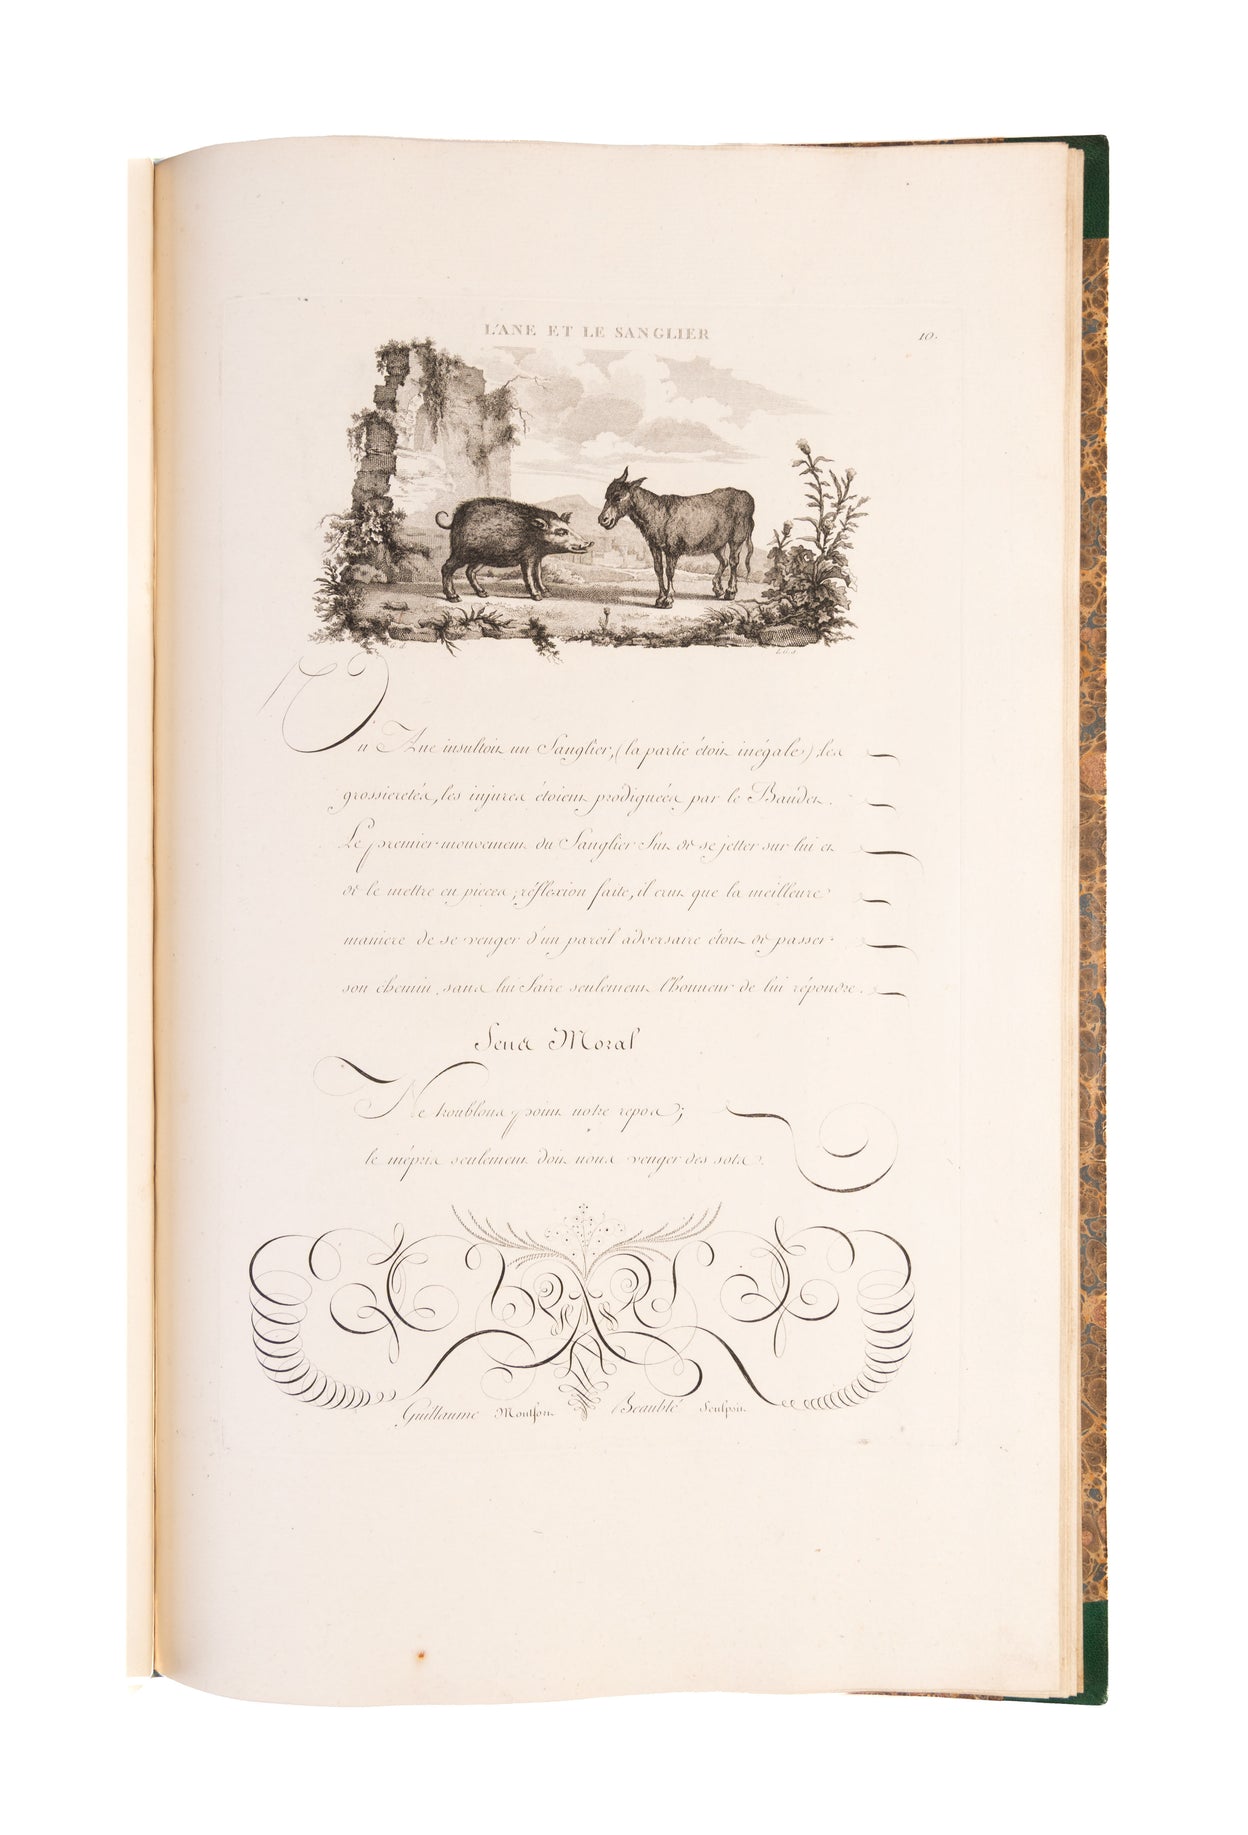 L'ANE ET LE SANGLIER
10.
Un Ane insultoit un Sanglier, (la partie étoit inégale) les
grossieretés, les injures étoient prodiguées par le Baudet.
Le premier mouvement du Sanglier fut de se jetter sur lui et
de le mettre en pieces ; réflexion faite, il crut que la meilleure
maniere de se venger d'un pareil adversaire étoit de passer
son chemin, sans lui faire seulement l'honneur de lui répondre.
Sens Moral
Ne troublons point notre repos ;
le mépris seulement doit nous venger des sots.
Guillaume Montfort Beaublé Sculpsit.